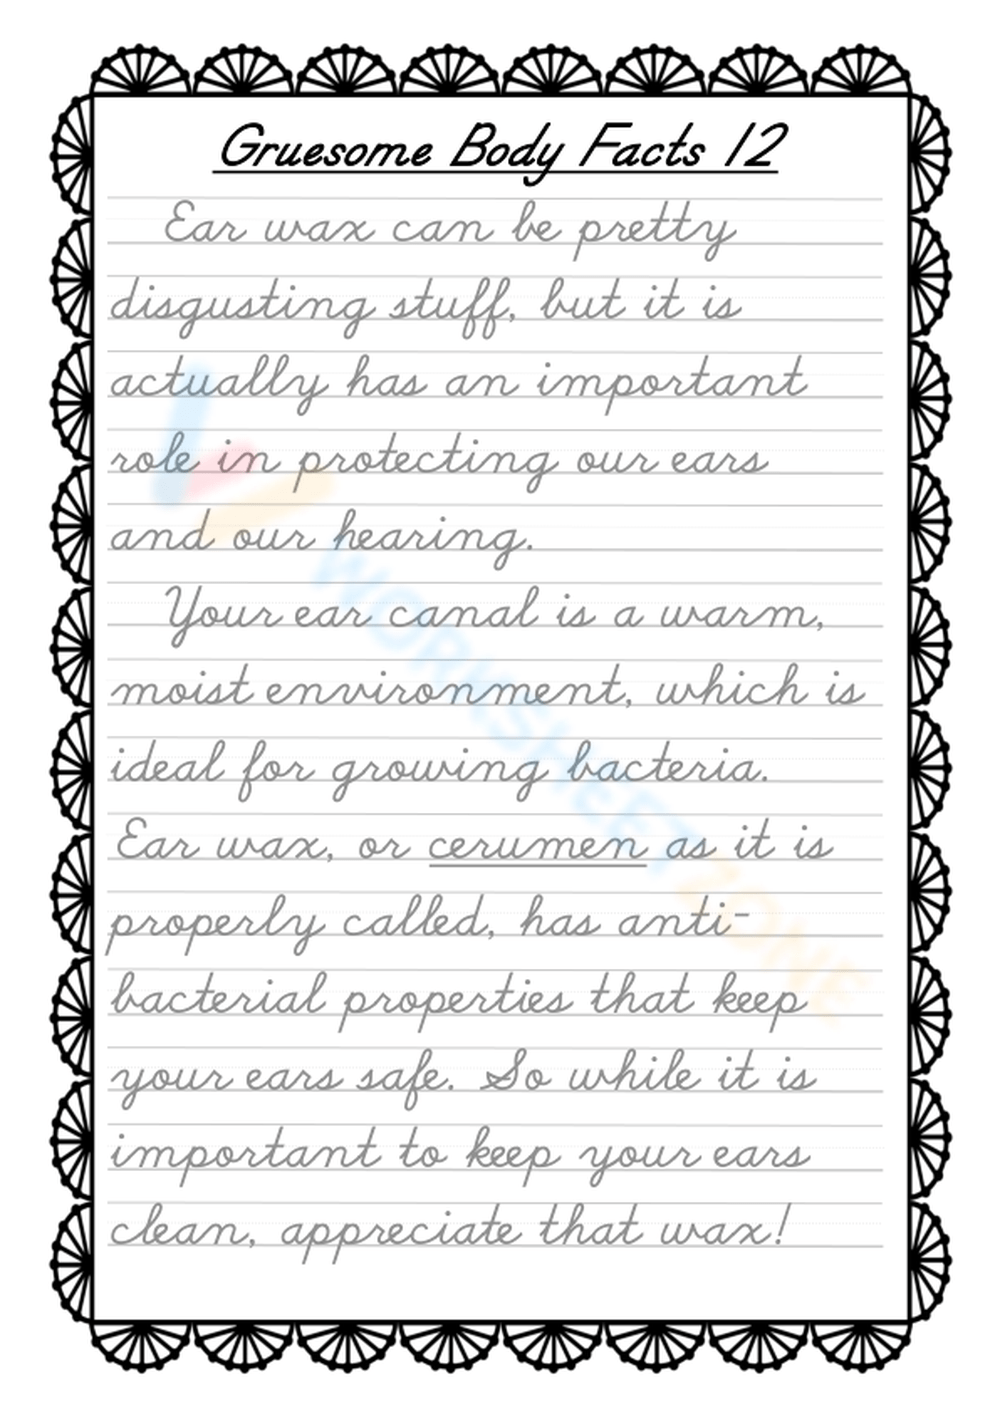 Gruesome Body Facts 12
Ear wax can be pretty
disgusting stuff, but it is
actually has an important
role in protecting our ears
and our hearing.
Your ear canal is a warm,
moist environment, which is
ideal for growing bacteria.
Ear wax, or cerumen as it is
properly called, has anti-
bacterial properties that keep
your ears safe. So while it is
important to keep your ears
clean, appreciate that wax!
WORKSHEETZONE